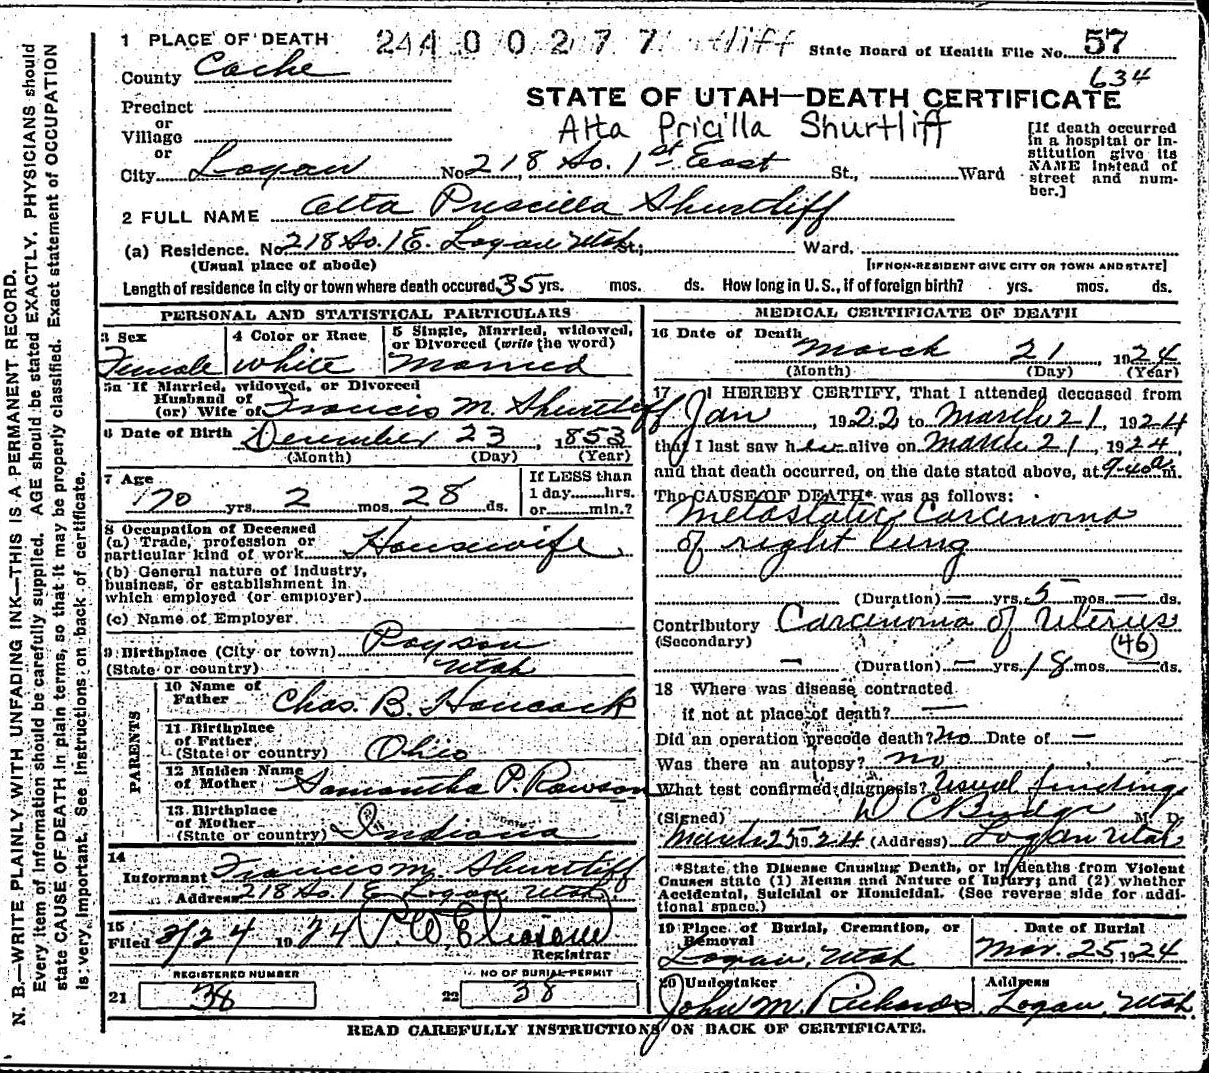 1 PLACE OF DEATH 2440 0277 State Board of Health File No. 57
County Cache 634
Precinct
STATE OF UTAH—DEATH CERTIFICATE
or
Village
Alta Pricilla Shurtliff
or
City Logan No 218 So. 1st East St., Ward
[If death occurred in a hospital or institution give its NAME instead of street and number.]
2 FULL NAME Alta Priscilla Shurtliff
(a) Residence. No 218 So. 1 E. Logan Utah St; Ward.
(Usual place of abode) [IF NON-RESIDENT GIVE CITY OR TOWN AND STATE]
Length of residence in city or town where death occured 35 yrs. mos. ds. How long in U. S., if of foreign birth? yrs. mos. ds.
PERSONAL AND STATISTICAL PARTICULARS
3 Sex Female
4 Color or Race White
5 Single, Married, widowed, or Divorced (write the word) Married
5a If Married, widowed, or Divorced
Husband of
(or) Wife of Francis M. Shurtliff
6 Date of Birth December 23, 1853
(Month) (Day) (Year)
7 Age 70 yrs. 2 mos. 28 ds.
If LESS than
1 day hrs.
or min.?
8 Occupation of Deceased
(a) Trade, profession or
particular kind of work Housewife
(b) General nature of industry,
business, or establishment in
which employed (or employer)
(c) Name of Employer
9 Birthplace (City or town) Payson
(State or country) Utah
PARENTS
10 Name of
Father Chas. B. Hancock
11 Birthplace
of Father
(State or country) Ohio
12 Maiden Name
of Mother Samantha P. Rawson
13 Birthplace
of Mother
(State or country) Indiana
14
Informant Francis M. Shurtliff
Address 218 So. 1 E. Logan, Utah
15
Filed 3/24 1924
Registrar
REGISTERED NUMBER NO OF BURIAL PERMIT
21 38 22 38
MEDICAL CERTIFICATE OF DEATH
16 Date of Death March 21, 1924
(Month) (Day) (Year)
17 I HEREBY CERTIFY, That I attended deceased from
Jan, 1922 to March 21, 1924
that I last saw her alive on March 21, 1924,
and that death occurred, on the date stated above, at 940a m.
The CAUSE OF DEATH* was as follows:
Metastatic Carcinoma
of right lung
(Duration) — yrs. 5 mos. — ds.
Contributory Carcinoma of Uterus
(Secondary) (46)
— (Duration) — yrs. 18 mos. — ds.
18 Where was disease contracted
if not at place of death? —
Did an operation precede death? No Date of —
Was there an autopsy? no
What test confirmed diagnosis? Usual findings
(Signed) D C Budge M. D.
March 25 1924 (Address) Logan Utah
*State the Disease Causing Death, or in deaths from Violent
Causes state (1) Means and Nature of Injury; and (2) whether
Accidental, Suicidal or Homicidal. (See reverse side for addi-
tional space.)
19 Place of Burial, Cremation, or Removal Logan, Utah
Date of Burial Mar. 25, 1924
20 Undertaker John M. Richards
Address Logan, Utah
READ CAREFULLY INSTRUCTIONS ON BACK OF CERTIFICATE.
N. B.—WRITE PLAINLY WITH UNFADING INK—THIS IS A PERMANENT RECORD.
Every item of information should be carefully supplied. AGE should be stated EXACTLY. PHYSICIANS should
state CAUSE OF DEATH in plain terms, so that it may be properly classified. Exact statement of OCCUPATION
is very important. See instructions on back of certificate.